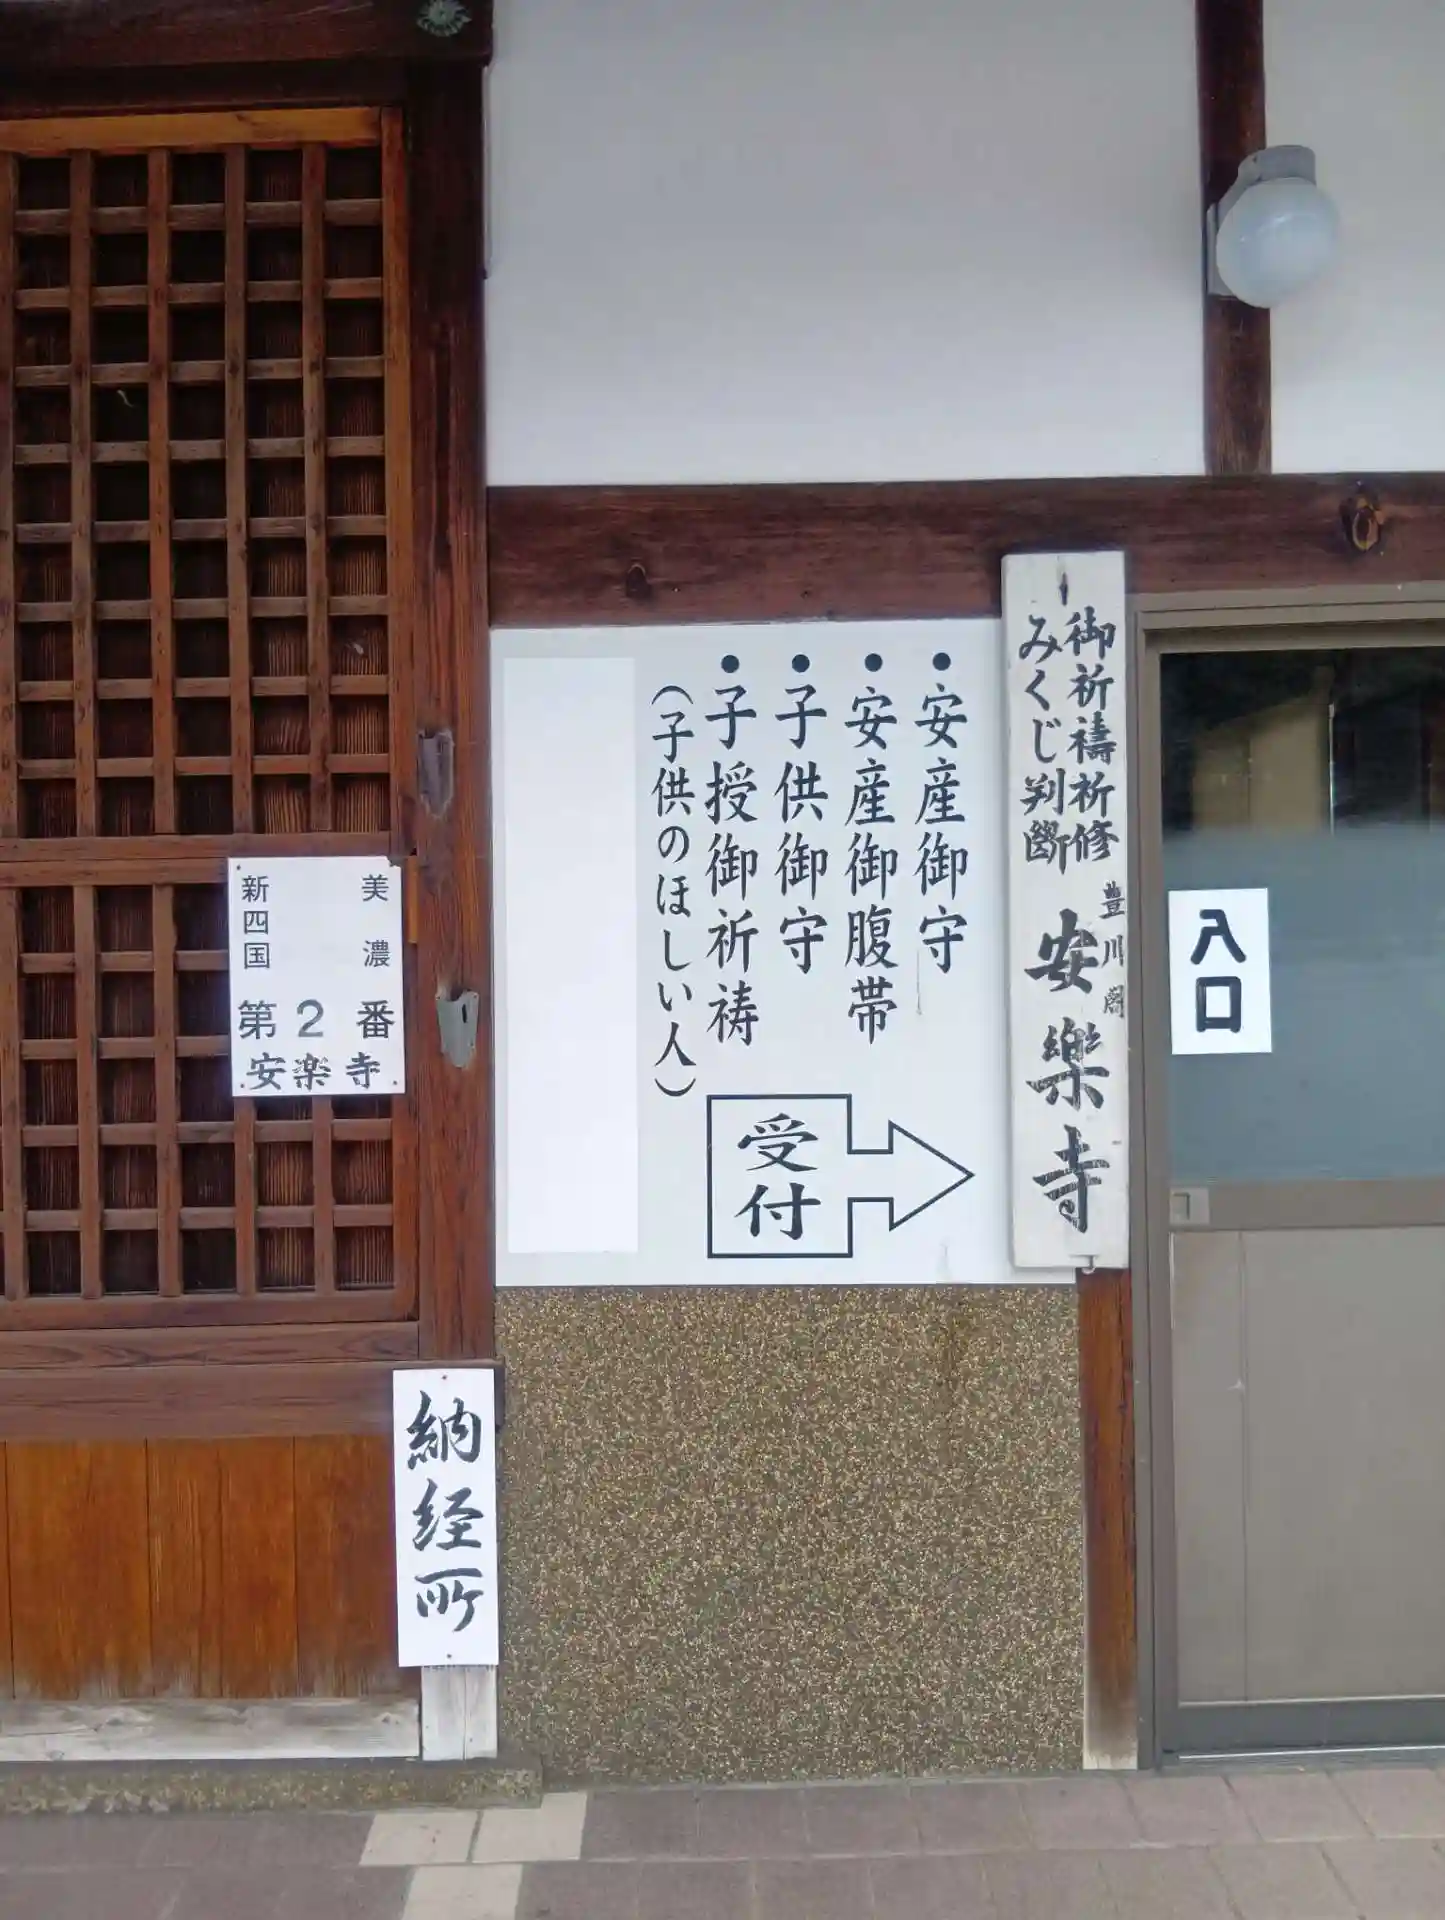 御祈禱祈修
みくじ判斷
豊川閣
安樂寺
入口
●安産御守
●安産御腹帯
●子供御守
●子授御祈祷
(子供のほしい人)
受付
美濃
新四国
第2番
安楽寺
納経所